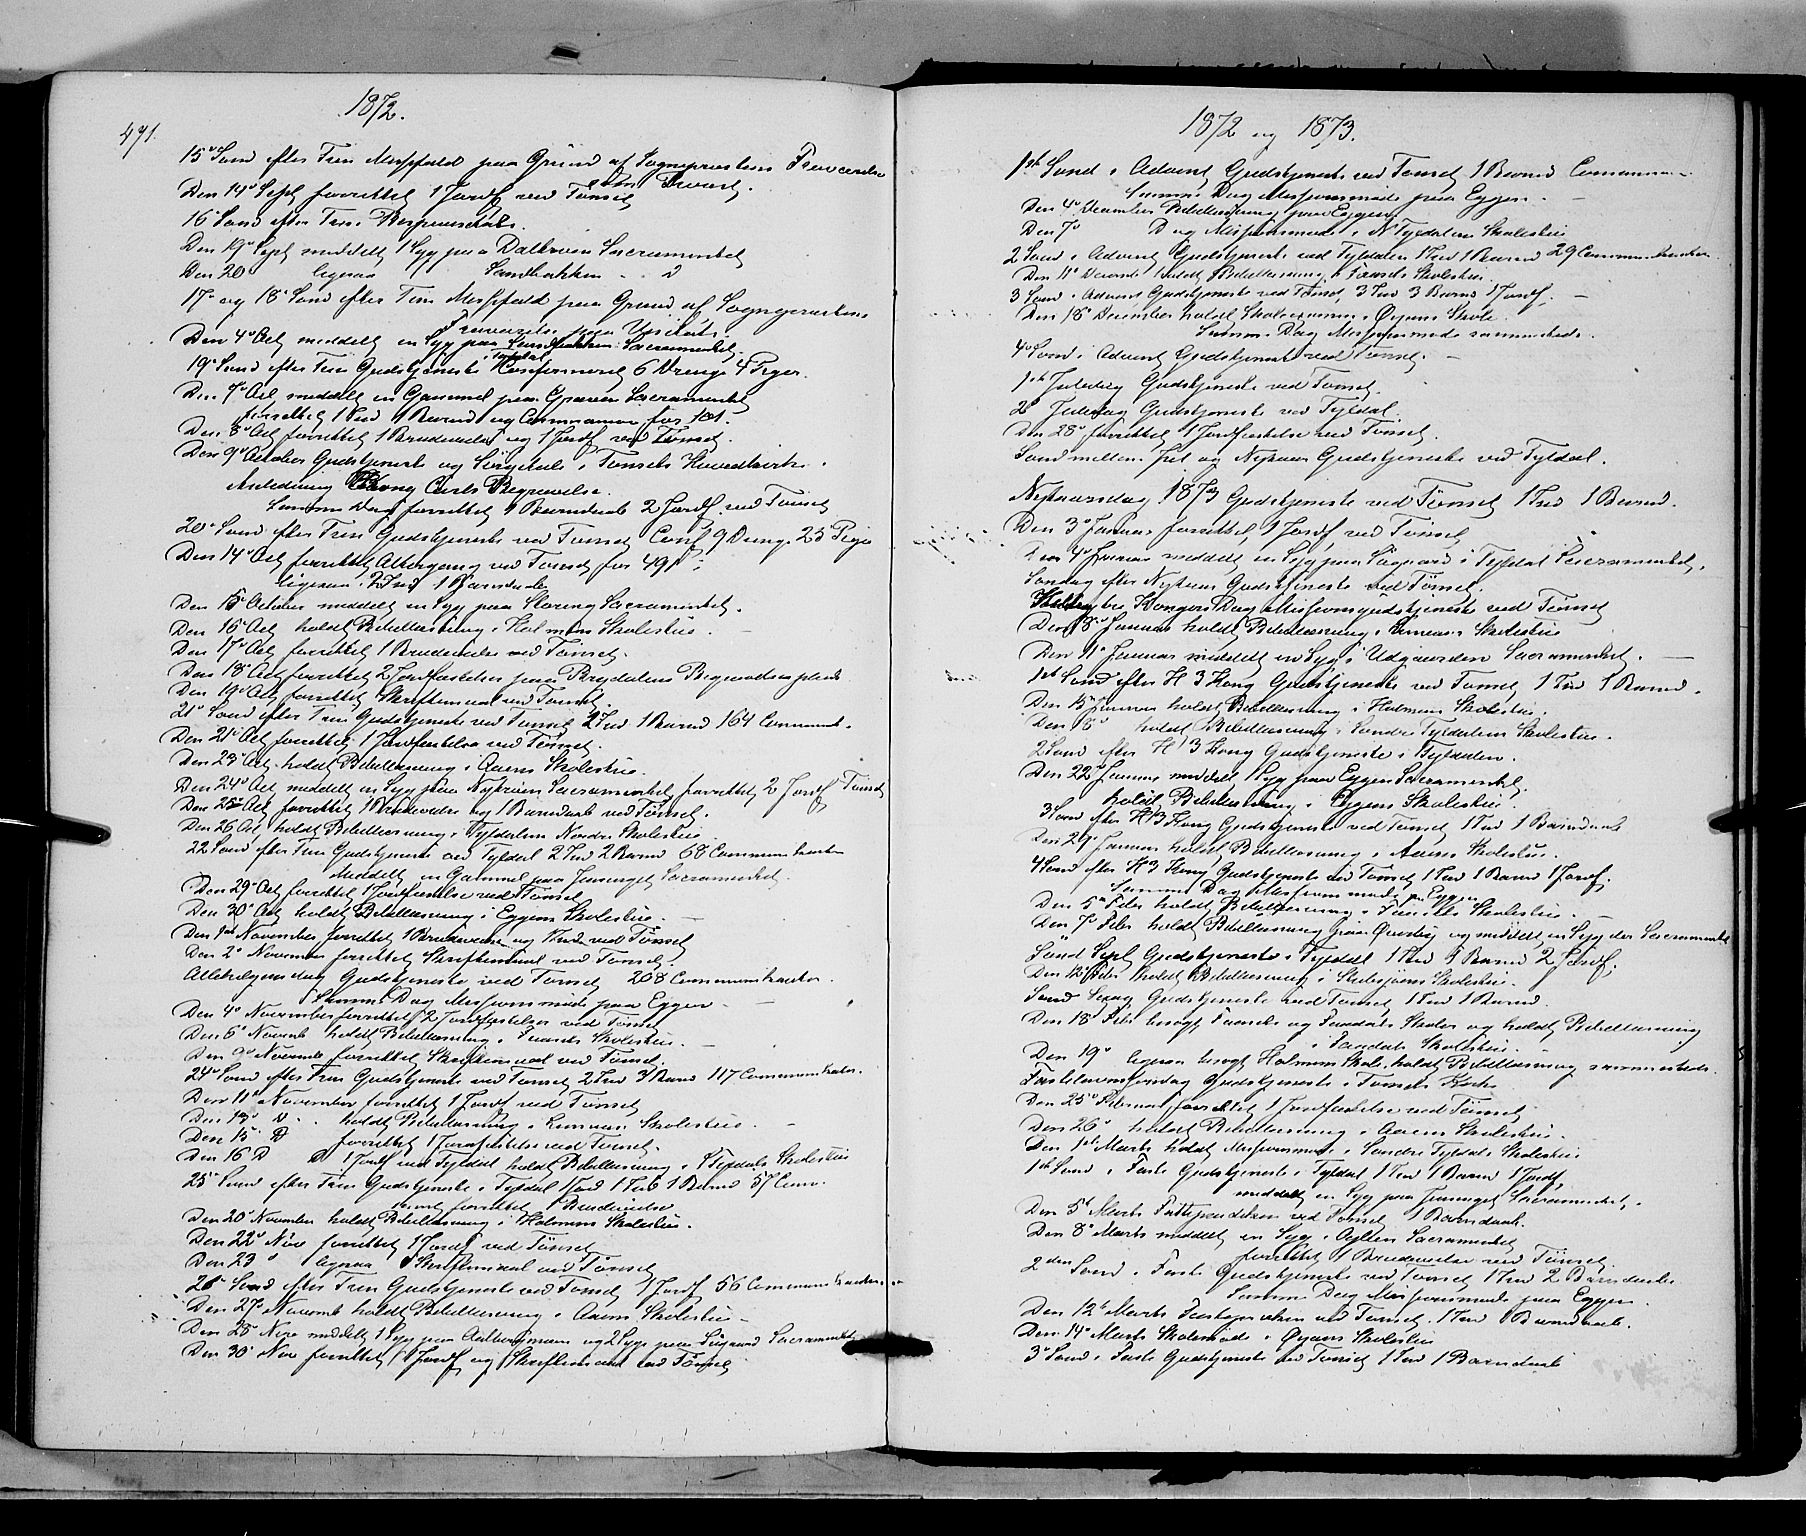 1872.
471.
15de Sønd efter Trin Messfald paa Grund af Sognepræstens Fraværelse
Den 14de Sept forrettet 1 Jordf ved Tønset
16 Sønd efter Trin
Den 19de Sept meddelt 1 Syg paa Sacramentet
Den 20 ligesaa Sandbakken
17de og 18de Sønd efter Trin Messfald paa Grund af Sognepræstens
Fraværelse paa
Den 4de Oct meddelt en Syg paa Sandbakken Sacramentet
19de Sønd efter Trin Gudstjeneste i Tyldal Konfirmeret 6 Drenge 4 Piger.
Den 7de Oct meddelt en Gammel paa Sacramentet
forrettet 1 Ind 1 Barned og Communion for 101.
Den 8de Oct forrettet 1 Brudevielse og 1 Jordf ved Tønset.
Den 9de October Gudstjeneste og Sørgetale i Tønsets Hovedkirke
Anledning Kong Carls Begravelse.
Samme Dag forrettet 1 Barnedaab 2 Jordf. ved Tønset
20de Sønd efter Trin Gudstjeneste ved Tønset Conf 9 Drenge 23 Piger
Den 14de Oct forrettet Altergang ved Tønset for 49
ligesaa 2 Ind 1 Barnedaab
Den 15de October meddelt en Syg paa Sacramentet.
Den 16de Oct holdt Bibellæsning i Holmens Skolestue.
Den 17de Oct forrettet 1 Brudevielse ved Tønset.
Den 18de Oct forrettet 2 Jordfæstelser paa Brydalens Begravelsesplads
Den 19de Oct forrettet Skriftemaal ved Tønset.
21de Sønd efter Trin Gudstjeneste ved Tønset 2 Ind 1 Barned 164 Communik.
Den 21de Oct forrettet 1 Jordfæstelse ved Tønset.
Den 23de Oct holdt Bibellæsning i Aaens Skolestue.
Den 24de Oct meddelt en Syg paa Sacramentet forrettet 2 Jordf Tønset
Den 25de Oct forrettet 1 Brudevielse og 1 Barnedaab ved Tønset.
Den 26 Oct holdt Bibellæsning i Tyldalens Nordre Skolestue
22 Sønd efter Trin Gudstjeneste ved Tyldal 2 Ind 2 Barned 68 Communikanter
Meddelt en Gammel paa Sacramentet.
Den 29de Oct forrettet 1 Jordfæstelse ved Tønset
Den 30de Oct holdt Bibellæsning i Eggens Skolestue.
Den 1st November forrettet 1 Brudevielse og 1 Ind ved Tønset
Den 2de November forrettet Skriftemaal ved Tønset.
Allehelgensdag Gudstjeneste ved Tønset 208 Communikanter.
Samme Dag Missionsmøde paa Eggen
Den 4de November forrettet 2 Jordfæstelser ved Tønset
Den 6te Novemb holdt Bibellæsning i Skolestue.
Den 9de Novemb forrettet Skriftemaal ved Tønset.
24de Sønd efter Trin Gudstjeneste ved Tønset 2 Ind 3 Barned 117 Communikanter.
Den 11te November forrettet 1 Jordf ved Tønset
Den 13de D holdt Bibellæsning i Skolestue.
Den 15 D forrettet 1 Jordfæstelse ved Tønset.
Den 16 D D 1 Jordf ved Tyldal holdt Bibellæsning i Tyldals Skolestue
25de Sønd efter Trin Gudstjeneste i Tyldal 1 Ind 1 Barned 57 Comm.
samt forrettet 1 Brudevielse
Den 20de November holdt Bibellæsning i Holmens Skolestue.
Den 22de Nov forrettet 1 Jordf ved Tønset
Den 23de ligesaa Skriftemaal ved Tønset
26de Sønd efter Trin Gudstjeneste ved Tønset 1 Jordf 56 Communikanter
Den 27de Novemb holdt Bibellæsning i Aaens Skolestue
Den 28 Nov meddelt 1 Syg paa og 2 Syge paa Sacramentet
Den 30 Nov forrettet 1 Jordf og Skriftemaal ved Tønset
1872 og 1873.
1ste Sønd i Advent Gudstjeneste ved Tønset 1 Barned
Samme Dag Missionsmøde paa Eggen.
Den 4de December Bibellæsning paa Eggen
Den 7de D og Missionsmøde i N Tyldalens Skolestue
2 Sønd i Advent Gudstjeneste ved Tyldalen 1 Ind 1 Barned 29 Communikanter
Den 11te Decemb holdt Bibellæsning i Skolestue.
3 Sønd i Advent Gudstjeneste ved Tønset, 3 Ind 3 Barned 1 Jordf.
Den 18de December holdt Skoleexamen i Øiens Skole.
Samme Dag Missionsmøde sammesteds.
4de Sønd i Advent Gudstjeneste ved Tønset.
1ste Juledag Gudstjeneste ved Tønset.
2de Juledag Gudstjeneste ved Tyldal.
Den 28de forrettet 1 Jordfæstelse ved Tønset.
Sønd mellem Jul og Nytaar Gudstjeneste ved Tyldal.
Nytaarsdag 1873 Gudstjeneste ved Tønset 1 Ind 1 Barned.
Den 3de Januar forrettet 1 Jordf ved Tønset
Den 4de Januar meddelt en Syg paa i Tyldal Sacramentet.
Søndag efter Nytaar Gudstjeneste ved Tønset.
Hellig tre Kongers Dag Missionsgudstjeneste ved Tønset
Den 8de Januar holdt Bibellæsning i Skolestue
Den 11te Januar meddelt en Syg i Udgaarden Sacramentet.
1ste Sønd efter H 3 Kong Gudstjeneste ved Tønset 1 Ind 1 Barned.
Den 15de Januar holdt Bibellæsning i Holmens Skolestue.
Den 18de holdt Bibellæsning i Søndre Tyldalens Skolestue.
2 Sønd efter H 3 Kong Gudstjeneste i Tyldalen.
Den 22de Januar meddelt 1 Syg paa Eggen Sacramentet.
holdt Bibellæsning i Eggens Skolestue.
3 Sønd efter H 3 Kong Gudstjeneste ved Tønset 1 Ind 1 Barnedaab
Den 29de Januar holdt Bibellæsning i Aaens Skolestue.
4 Sønd efter H 3 Kong Gudstjeneste ved Tønset 1 Ind 1 Barned 1 Jordf.
Samme Dag Missionsmøde paa Eggen
Den 5te Feb holdt Bibellæsning i Skolestue.
Den 7de Feb holdt Bibellæsning paa og meddelt en Syg der Sacramentet
Sønd Sept Gudstjeneste i Tyldal 1 Ind 1 Barned 2 Jordf.
Den 12te Feb holdt Bibellæsning i Skolestue.
Sønd Sexag Gudstjeneste ved Tønset 1 Ind 1 Barned.
Den 18de Feb besøgt og Skoler og holdt Bibellæsning
i Skolestue.
Den 19de ligesaa besøgt Holmens Skole, holdt Bibellæsning sammesteds.
Fastelavnssøndag Gudstjeneste i Tønsets Kirke
Den 25de Februar forrettet 1 Jordfæstelse ved Tønset
Den 26de holdt Bibellæsning i Aaens Skolestue.
Den 1ste Marts holdt Missionsmøde i Søndre Tyldals Skolestue
1ste Sønd i Faste Gudstjeneste i Tyldal 1 Ind 1 Barned 1 Jordf,
meddelt en Syg paa Sacramentet.
Den 5te Marts Fasteprædiken ved Tønset 1 Barnedaab.
Den 8de Marts meddelt en Syg i Sacramentet
forrettet 1 Brudevielse ved Tønset.
2den Sønd i Faste Gudstjeneste ved Tønset 1 Ind 2 Barnedaab
Samme Dag Missionsmøde paa Eggen.
Den 12te Marts Fasteprædiken ved Tønset 1 Ind 1 Barnedaab.
Den 14de Marts Skolemøde i Øiens Skolestue
3de Sønd i Faste Gudstjeneste ved Tønset 1 Ind 1 Barnedaab